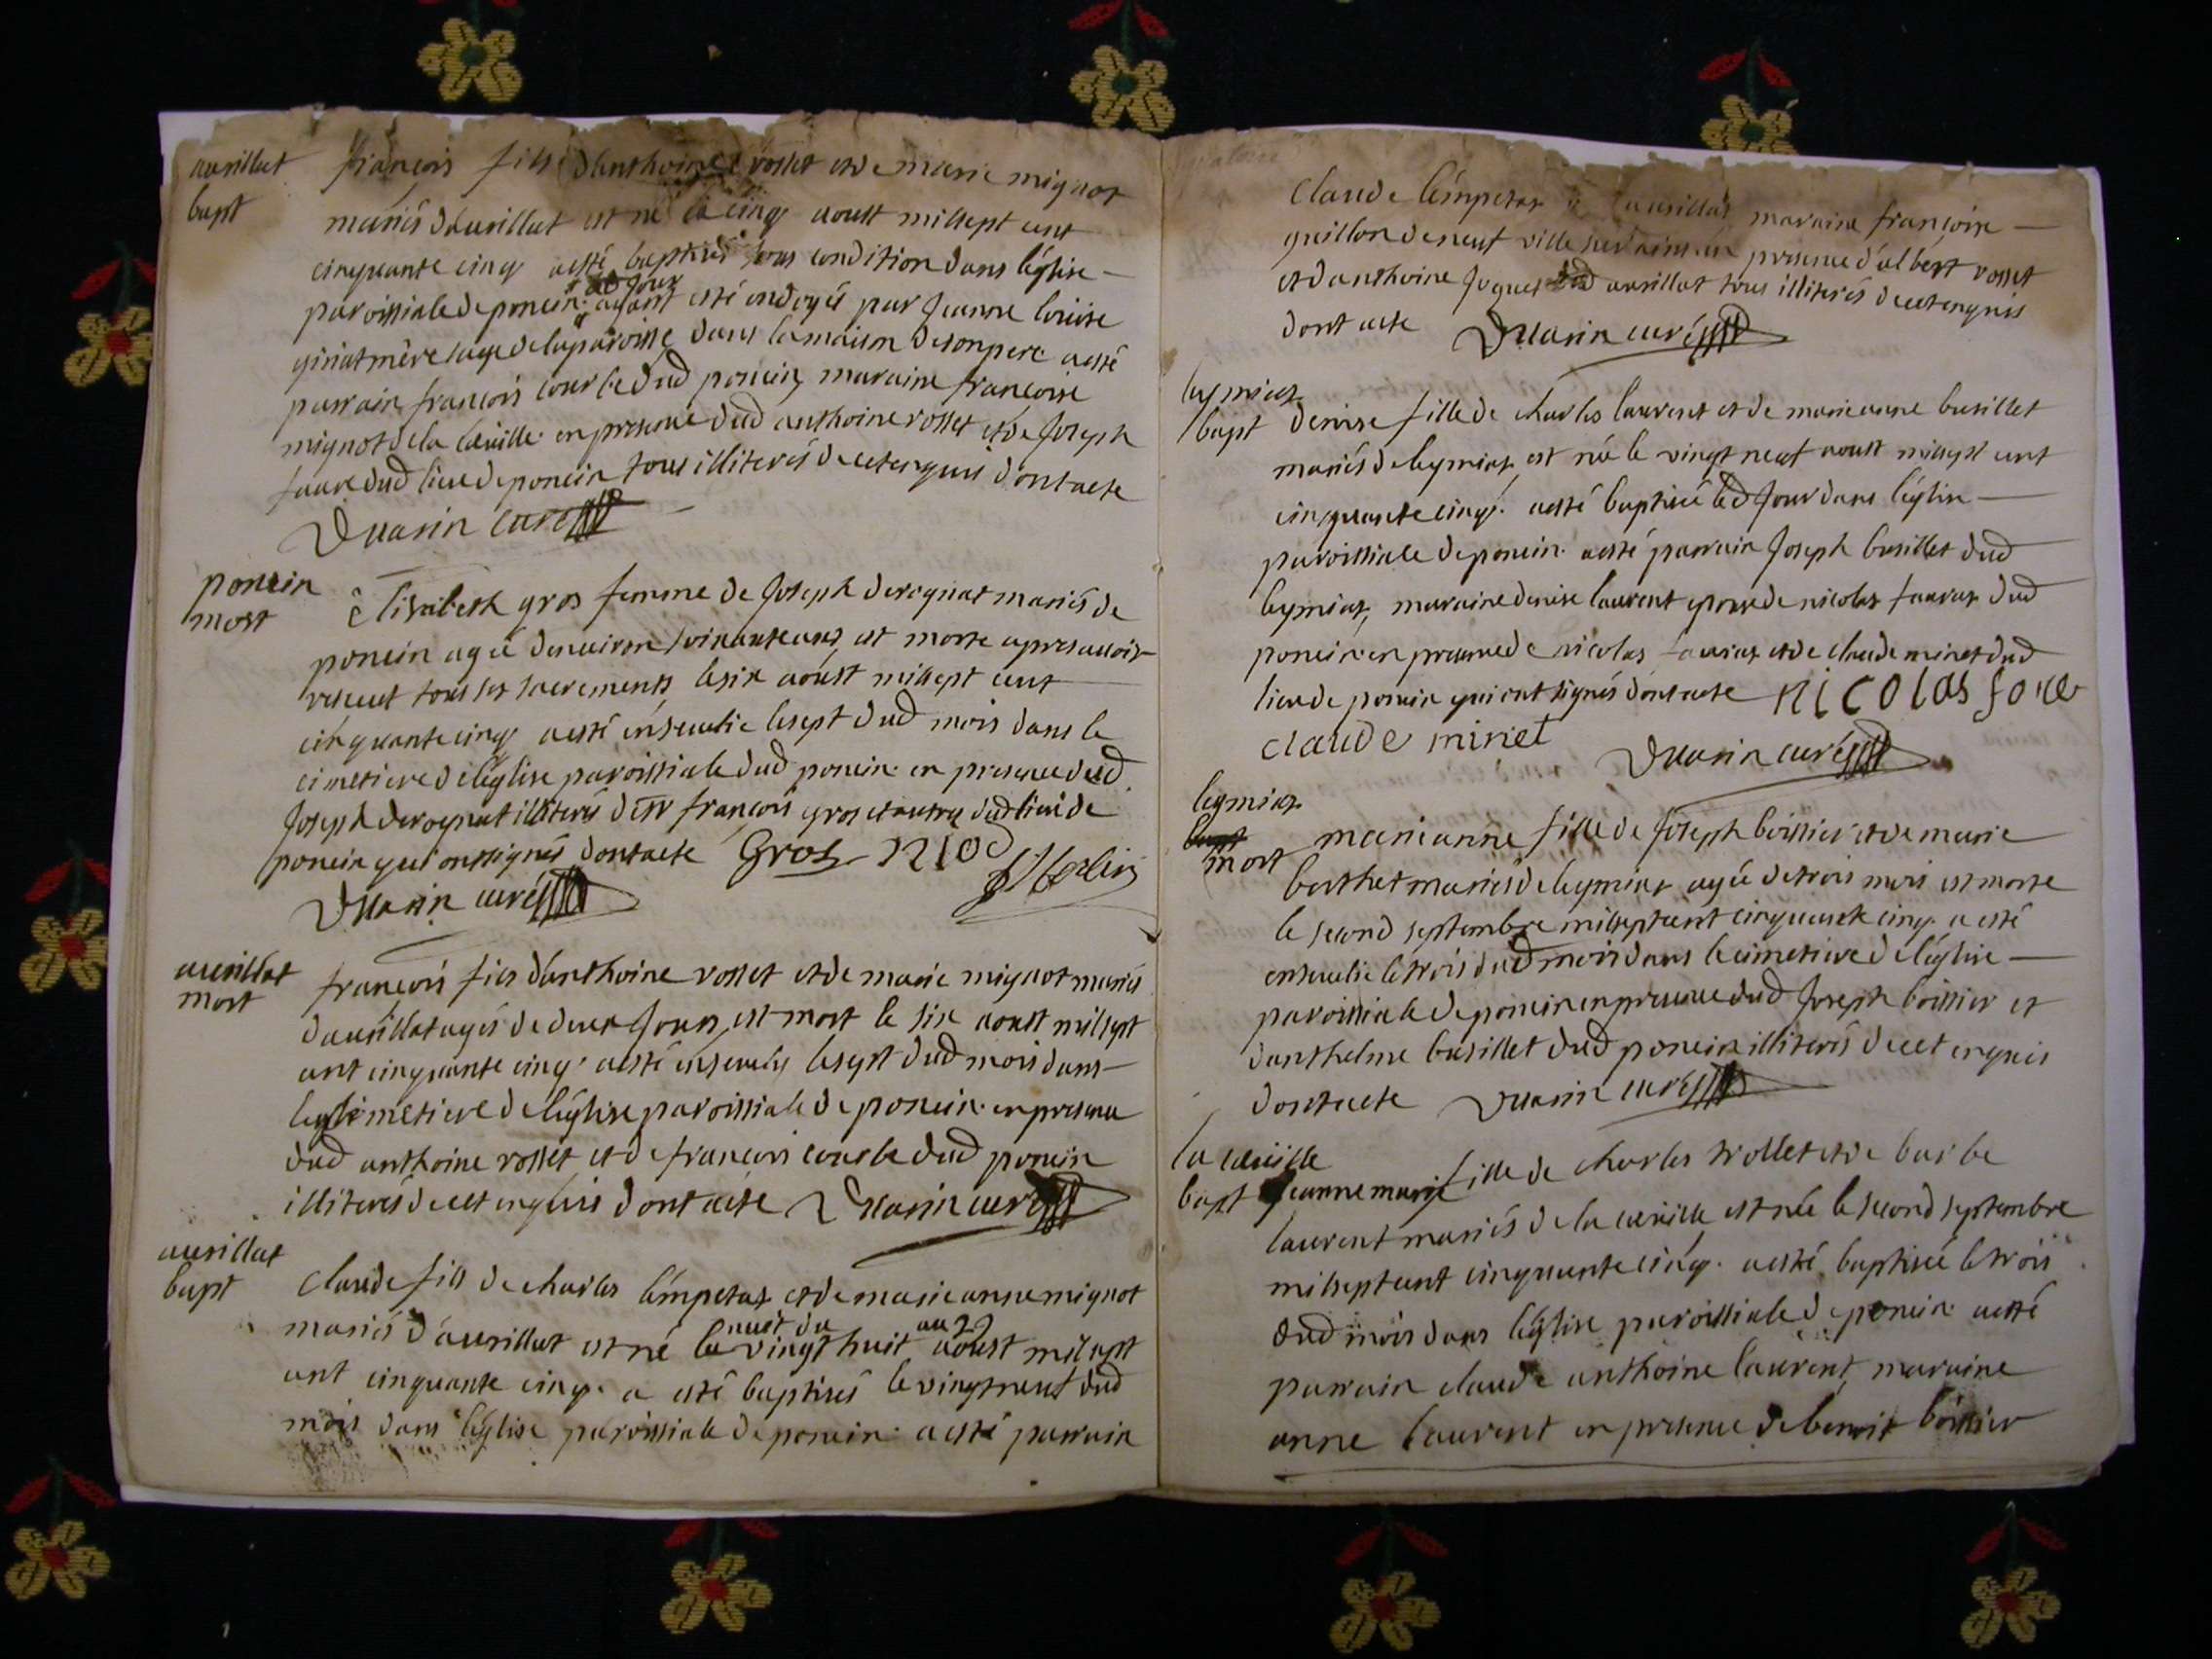 avrillat
bapt
francois fils d'anthoine rosset et de marie mignot
mariés d'avrillat est né le cinq aoust mil sept cent
cinquante cinq a esté baptisé sous condition dans l'église
led jour
paroissiale de poncin ayant esté ondoyé par jeanne louise
mère sage de la paroisse dans la maison de son pere a esté
parrain francois courbe dud poncin marraine francoise
mignot de la cueille en presence dud anthoine rosset et de joseph
faure dud lieu de poncin tous illiterés de ce enquis dont acte
Duarin curé
poncin
mort
Elisabeth gros femme de joseph derognat mariés de
poncin agée d'environ soixante ans est morte apres avoir
receut tous les sacrements le six aoust mil sept cent
cinquante cinq a esté ensevelie le sept dud mois dans le
cimetiere de l'église paroissiale dud poncin en presence dud
joseph derognat illiterés de sr francois gros et autres dud lieu de
poncin qui ont signés dont acte Gros
Duarin curé
avrillat
mort
francois fils d'anthoine rosset et de marie mignot mariés
d'avrillat agés de deux jours est mort le six aoust mil sept
cent cinquante cinq a esté ensevely le sept dud mois dans
cimetiere de l'église paroissiale de poncin en presence
dud anthoine rosset et de francois courbe dud poncin
illiterés de ce enquis dont acte Duarin curé
avrillat
bapt
claude fils de charles l'emperaz et de marie anne mignot
nuit du au 29
mariés d'avrillat est né la vingt huit aoust mil sept
cent cinquante cinq a esté baptisés le vingt neuf dud
mois dans l'église paroissiale de poncin a esté parrain
claude l'emperaz d'avrillat marraine francoise
guillon de neuf ville en presence d'albert rosset
et d'anthoine dud avrillat tous illiterés de ce enquis
dont acte Duarin curé
leymiaz
bapt
denise fille de charles laurent et de marie anne busillet
mariés de leymiaz est née le vingt neuf aoust mil sept cent
cinquante cinq a esté baptisée led jour dans l'église
paroissiale de poncin a esté parrain joseph busillet dud
leymiaz, marraine denise laurent epouse de nicolas dud
poncin en presence de nicolas et de claude minet dud
lieu de poncin qui ont signés dont acte NICOLAS
claude minet Duarin curé
leymiaz
bapt
mort
marie anne fille de joseph boissier et de marie
berthet mariés de leymiaz agée de trois mois est morte
le second septembre mil sept cent cinquante cinq a esté
ensevelie le trois dud mois dans le cimetiere de l'église
paroissiale de poncin en presence dud joseph boissier et
d'anthelme busillet dud poncin illiterés de ce enquis
dont acte Duarin curé
la cueille
bapt
jeanne marie fille de charles trollet et de barbe
laurent mariés de la cueille est née le second septembre
mil sept cent cinquante cinq a esté baptisée le trois
dud mois dans l'église paroissiale de poncin a esté
parrain claude anthoine laurent, marraine
anne laurent en presence de benoit boissier